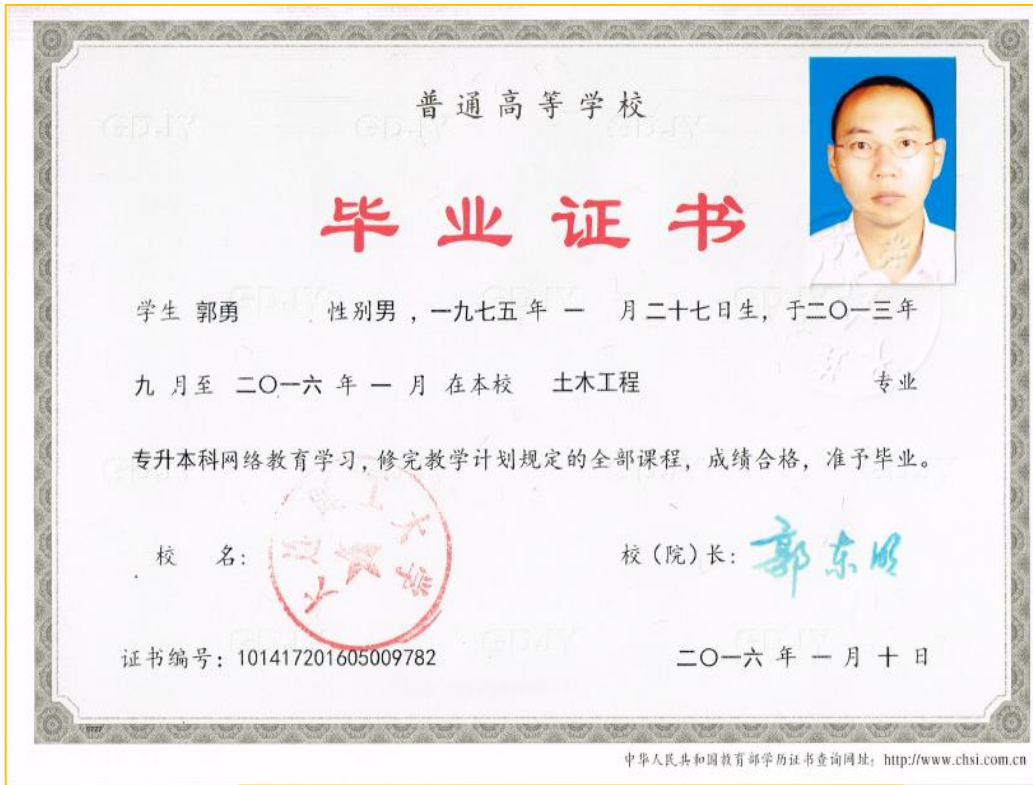 普通高等学校
毕业证书
学生 郭勇 性别男，一九七五年 一 月二十七日生，于二〇一三年
九 月至 二〇一六 年 一 月 在本校 土木工程 专业
专升本科网络教育学习，修完教学计划规定的全部课程，成绩合格，准予毕业。
校 名：
大连理工大学
校（院）长：郭东明
证书编号：101417201605009782
二〇一六 年 一 月 十 日
中华人民共和国教育部学历证书查询网址：http://www.chsi.com.cn